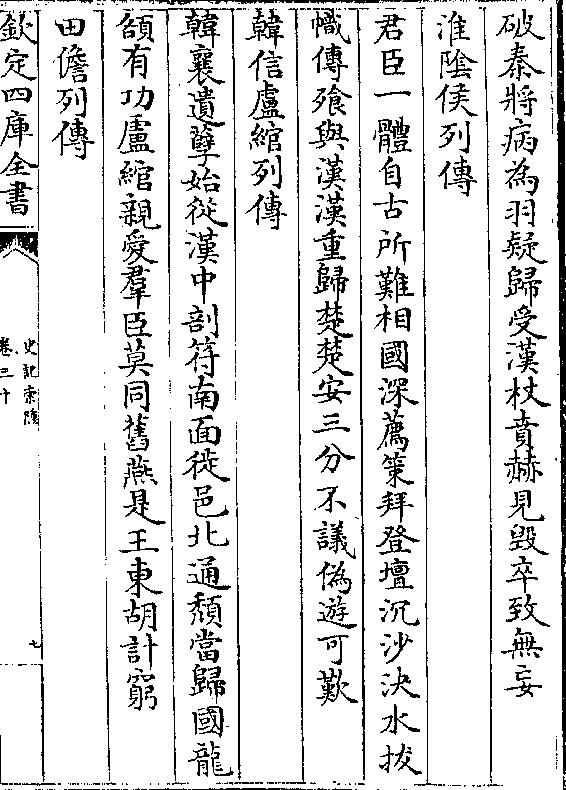 破秦將病為羽疑歸受漢杖賁赫見毁卒致無妄
淮陰侯列傳
君臣一體自古所難相國深薦策拜登壇沉沙決水拔
幟傳飱與漢漢重歸楚楚安三分不議偽遊可歎
韓信盧綰列傳
韓襄遺孽始從漢中剖符南面徙邑北通頽當歸國龍
頟有功盧綰親愛羣臣莫同舊燕是王東胡計窮
田儋列傳
欽定四庫全書
史記索隱
卷三十
七